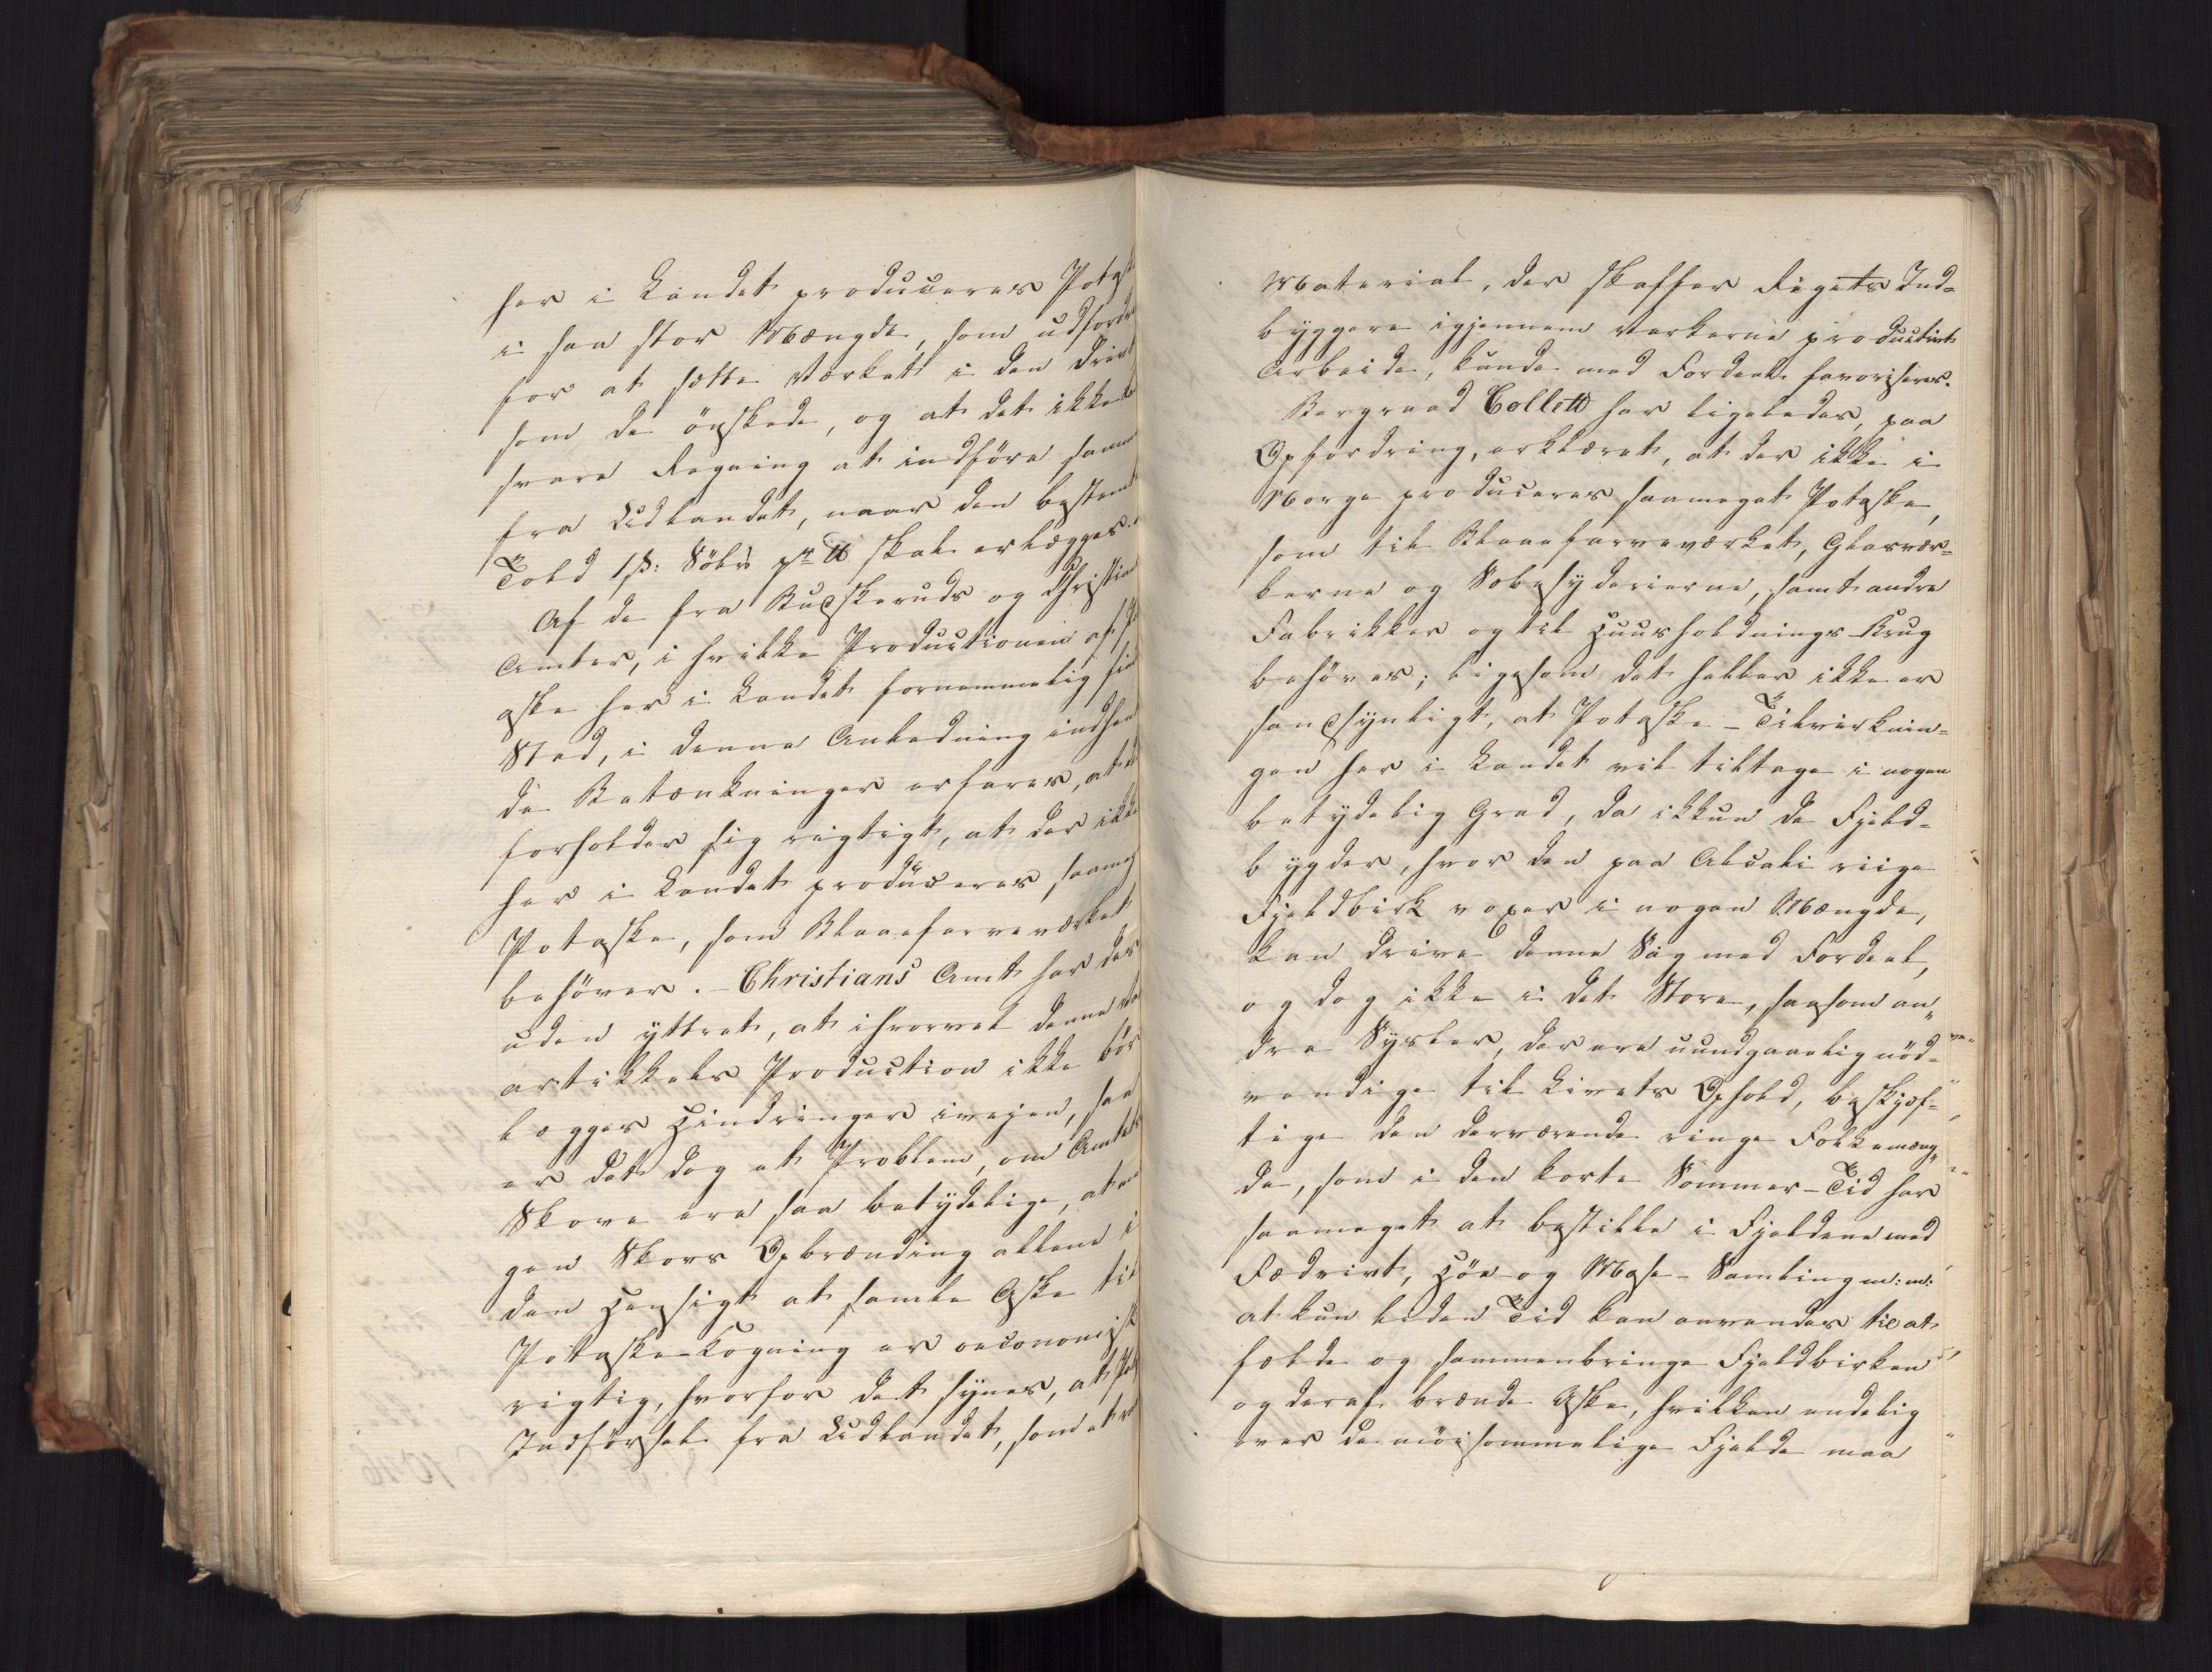 her i Landet produceres Potask
i saa stor Mængde, som udfordr
for at sætte Værket i den Drivt
som de önskede, og at det ikke k
svare Regning at indföre samm
fra Udlandet, naar den bestemt
Told 1 ß: Sölv pr ℔ skal erlægges.
Af de fra Buskeruds og Christia
Amter, i hvilke Productionen af P
aske her i Landet fornemmelig fin
Sted, i denne Anledning indhen
de Betænkninger erfares, at d
forholder sig rigtigt, at der ikke
her i Landet produceres saameg
Potaske, som Blaaefarveværket
behöver. – Christians Amt har der
uden yttret, at ihvorvel denne Va
artikkels Production ikke bör
lægges Hindringer iveien, saa
er det dog et Problem, om Amtets
Skove ere saa betydelige, at no
gen Skovs Opbrænding allene i
den Hensigt at samle Aske til
Potaske-Kogning er oeconomisk
rigtig, hvorfor det synes, at Pot
Indförsel fra Udlandet, som et r
Material, der skaffer Rigets Ind=
byggere igjennem Værkerne productivt
Arbeide, kunde med Fordeel favoriseres.
Bergraad Collett har ligeledes, paa
Opfordring, erklæret, at der ikke i
Norge produceres saameget Potaske,
som til Blaaefarveværket, Glasvær=
kerne og Sæbesyderierne, samt andre
Fabrikker og til Huusholdnings-Brug
behöves; ligesom det heller ikke er
sandsynligt, at Potaske-Tilvirknin=
gen her i Landet vil tiltage i nogen
betydelig Grad, da ikkun de Fjeld=
bygder, hvor den paa Alcali riige
Fjeldbirk voxer i nogen Mængde,
kan drive denne Sag med Fordeel,
og dog ikke i det Store, saasom an„
dre Sysler, der ere uundgaaelig nöd=
vendige til Livets Ophold, beskjæf=
tige den derværende ringe Folkemæng„
de, som i den korte Sommer-Tid har
saameget at bestille i Fjeldene med
Fædrivt, Höe- og Mose-Samling m: m:
at kun liden Tid kan anvendes til at
fælde og sammenbringe Fjeldbirken
og deraf brænde Aske, hvilken endelig
over de möisommelige Fjelde maa